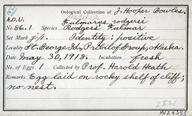 Oological Collection of J. Hooper Bowles.
A.O.U. Fulmarus rodgersi
No 86.1 Species Rodgers Fulmar
Set Mark 1/1 Identity: positive
Locality St. George Ids, Pribilof Group, Alaska
Date May 30, 1913. Incubation fresh
No. of Eggs 1 Collected by Prof. Harold Heath
Remarks: Egg laid on rocky shelf of cliff;
no nest.